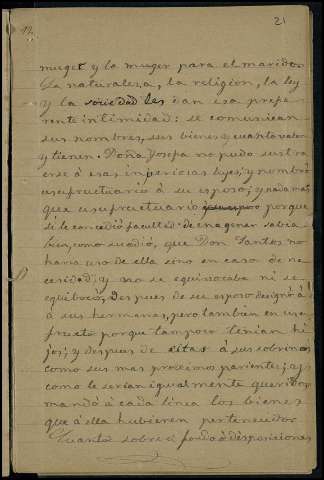 21
12
muger y la muger para el marido.
La naturaleza, la religion, la ley
y la sociedad les dan esa prefe-
rente intimidad: se comunican
sus nombres, sus bienes y cuanto valen
y tienen. Doña Josefa no pudo sustra
erse á esas imperiosas leyes; y nombró
usufructuario á su esposo; y nada mas
que usufructuario porque
si le concedió facultad de enagenar sabia
bien, como sucedió, que Don Santos no
haria uso de ella sino en caso de ne
cesidad; y no se equivocaba ni se
equibocó; despues de su esposo designó á
á sus hermanas, pero tambien en usu
fructo porque tampoco tenian hi
jos; y despues de estas á sus sobrinos
como sus mas procsimos parientes; y
como le serian igualmente queridos
mandó á cada linea los bienes
que á ella hubieren pertenecido.
Cuanto sobre el fondo á disposiciones